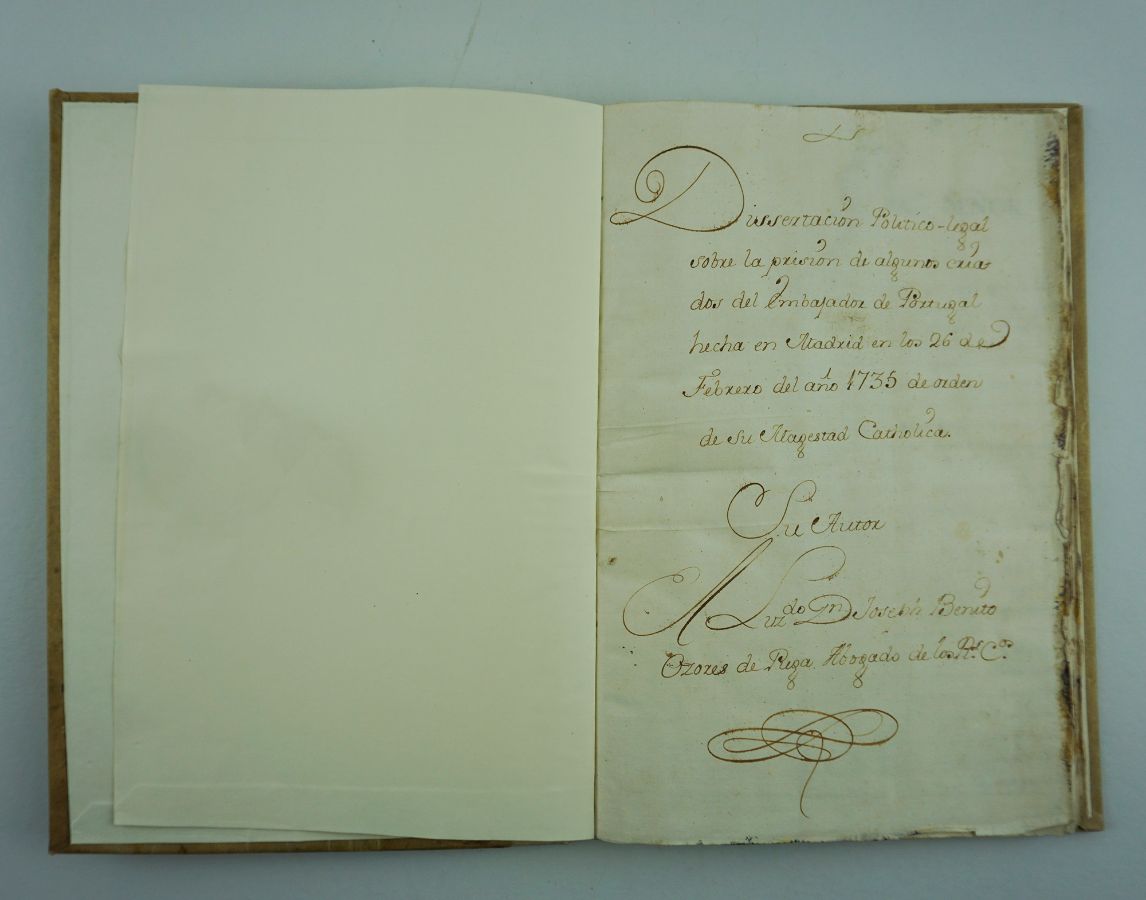 Dissertación Politico-legal
sobre la prisión de algunos cria
dos del embajador de Portugal
hecha en Madrid en los 26 de
Febrero del año 1735 de orden
de su Magestad Catholica.
Su Autor
Lizdo Dn Joseph Benito
Ozores de Puga Abogado de los Rs. Cos.